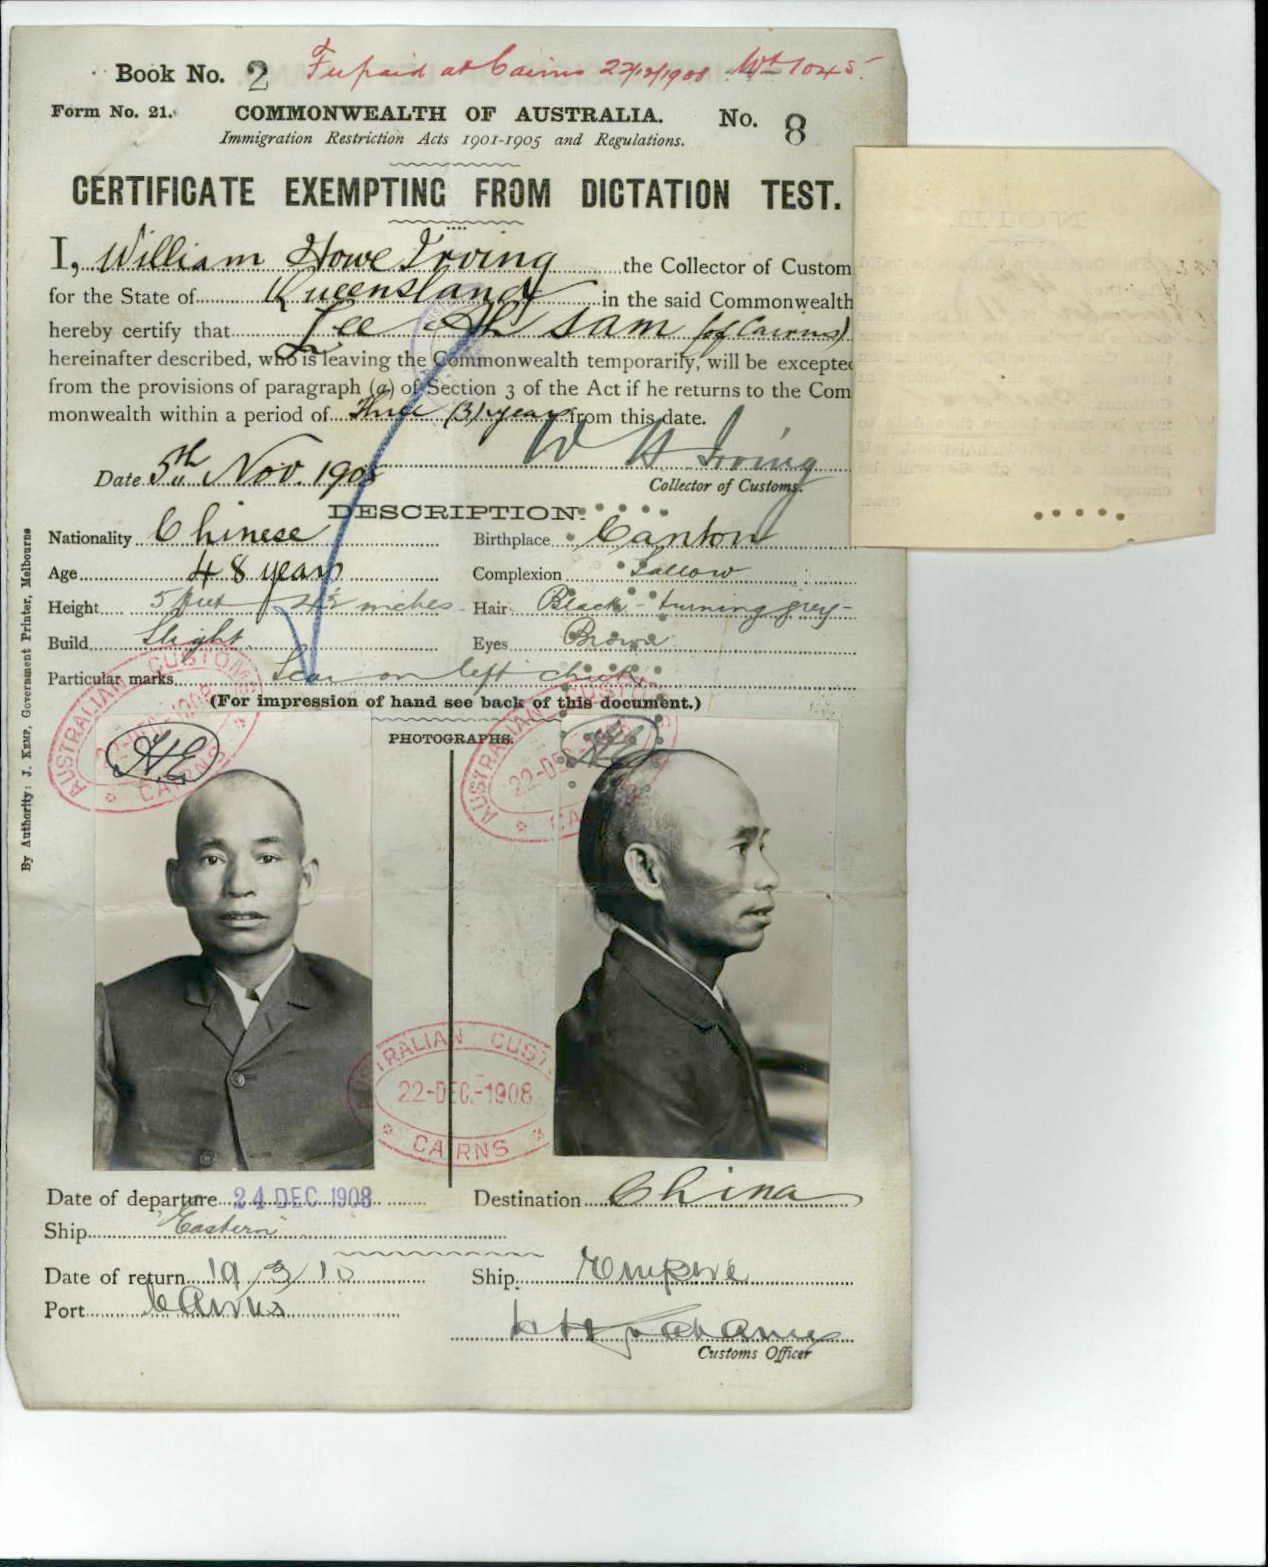 Book No. 2 at Cairns 22/12/1908 1045
Form No. 21. COMMONWEALTH OF AUSTRALIA. No. 8
Immigration Restriction Acts 1901-1905 and Regulations.
CERTIFICATE EXEMPTING FROM DICTATION TEST.
I, William Howe Irving the Collector of Custom
for the State of Queensland in the said Commonwealth
hereby certify that Lee Ah Sam (of Cairns)
hereinafter described, who is leaving the Commonwealth temporarily, will be excepte
from the provisions of paragraph (a) of Section 3 of the Act if he returns to the Com
monwealth within a period of Three (3) years from this date.
W H Irving
Date 5th Nov. 1908
Collector of Customs.
DESCRIPTION.
Nationality Chinese Birthplace Canton
Age 48 years Complexion Sallow
Height 5 feet 4½ inches Hair Black - turning grey -
Build Slight Eyes Brown
Particular marks Scar on left cheek
(For impression of hand see back of this document.)
PHOTOGRAPHS.
AUSTRALIAN CUSTOMS 22-DEC.-1908 CAIRNS
HE
AUSTRALIAN CUSTOMS 22-DEC.-1908 CAIRNS
HE
AUSTRALIAN CUST 22-DEC.-1908 CAIRNS
Date of departure 24 DEC 1908 Destination China
Ship Eastern
Date of return 19/3/10 Ship Empire
Port Cairns
Customs Officer
By Authority: J. KEMP, Government Printer, Melbourne
NOTE